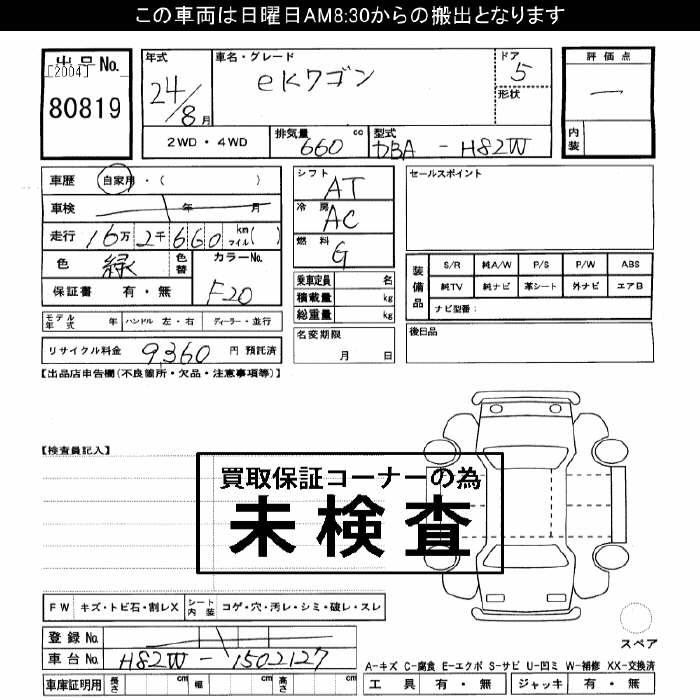 この車両は日曜日AM8:30からの搬出となります
出品No.
[2004]
80819
年式
24/8月
車名・グレード
eKワゴン
ドア
5
形状
評価点
―
内装
2WD・4WD
排気量
660 cc
型式
DBA-H82W
車歴 自家用・( )
車検 年 月
走行 16万2千660 km マイル( )
色 緑 色替 カラーNo.
F20
保証書 有・無
モデル年式 年 ハンドル 左・右 ディーラー・並行
リサイクル料金 9,360 円 預託済
シフト
AT
冷房
AC
燃料
G
乗車定員 名
積載量 kg
総重量 kg
名変期限
月 日
セールスポイント
装備品
S/R 純A/W P/S P/W ABS
純TV 純ナビ 革シート 外ナビ エアB
ナビ型番:
後日品
【出品店申告欄(不良箇所・欠品・注意事項等)】
【検査員記入】
買取保証コーナーの為
未検査
FW キズ・トビ石・割レX シート内装 コゲ・穴・汚レ・シミ・破レ・スレ
登録No.
車台No. H82W-1502127
車庫証明用 長さ cm 幅 cm 高さ cm
スペア
A-キズ C-腐食 E-エクボ S-サビ U-凹ミ W-補修 XX-交換済
工具 有・無 ジャッキ 有・無